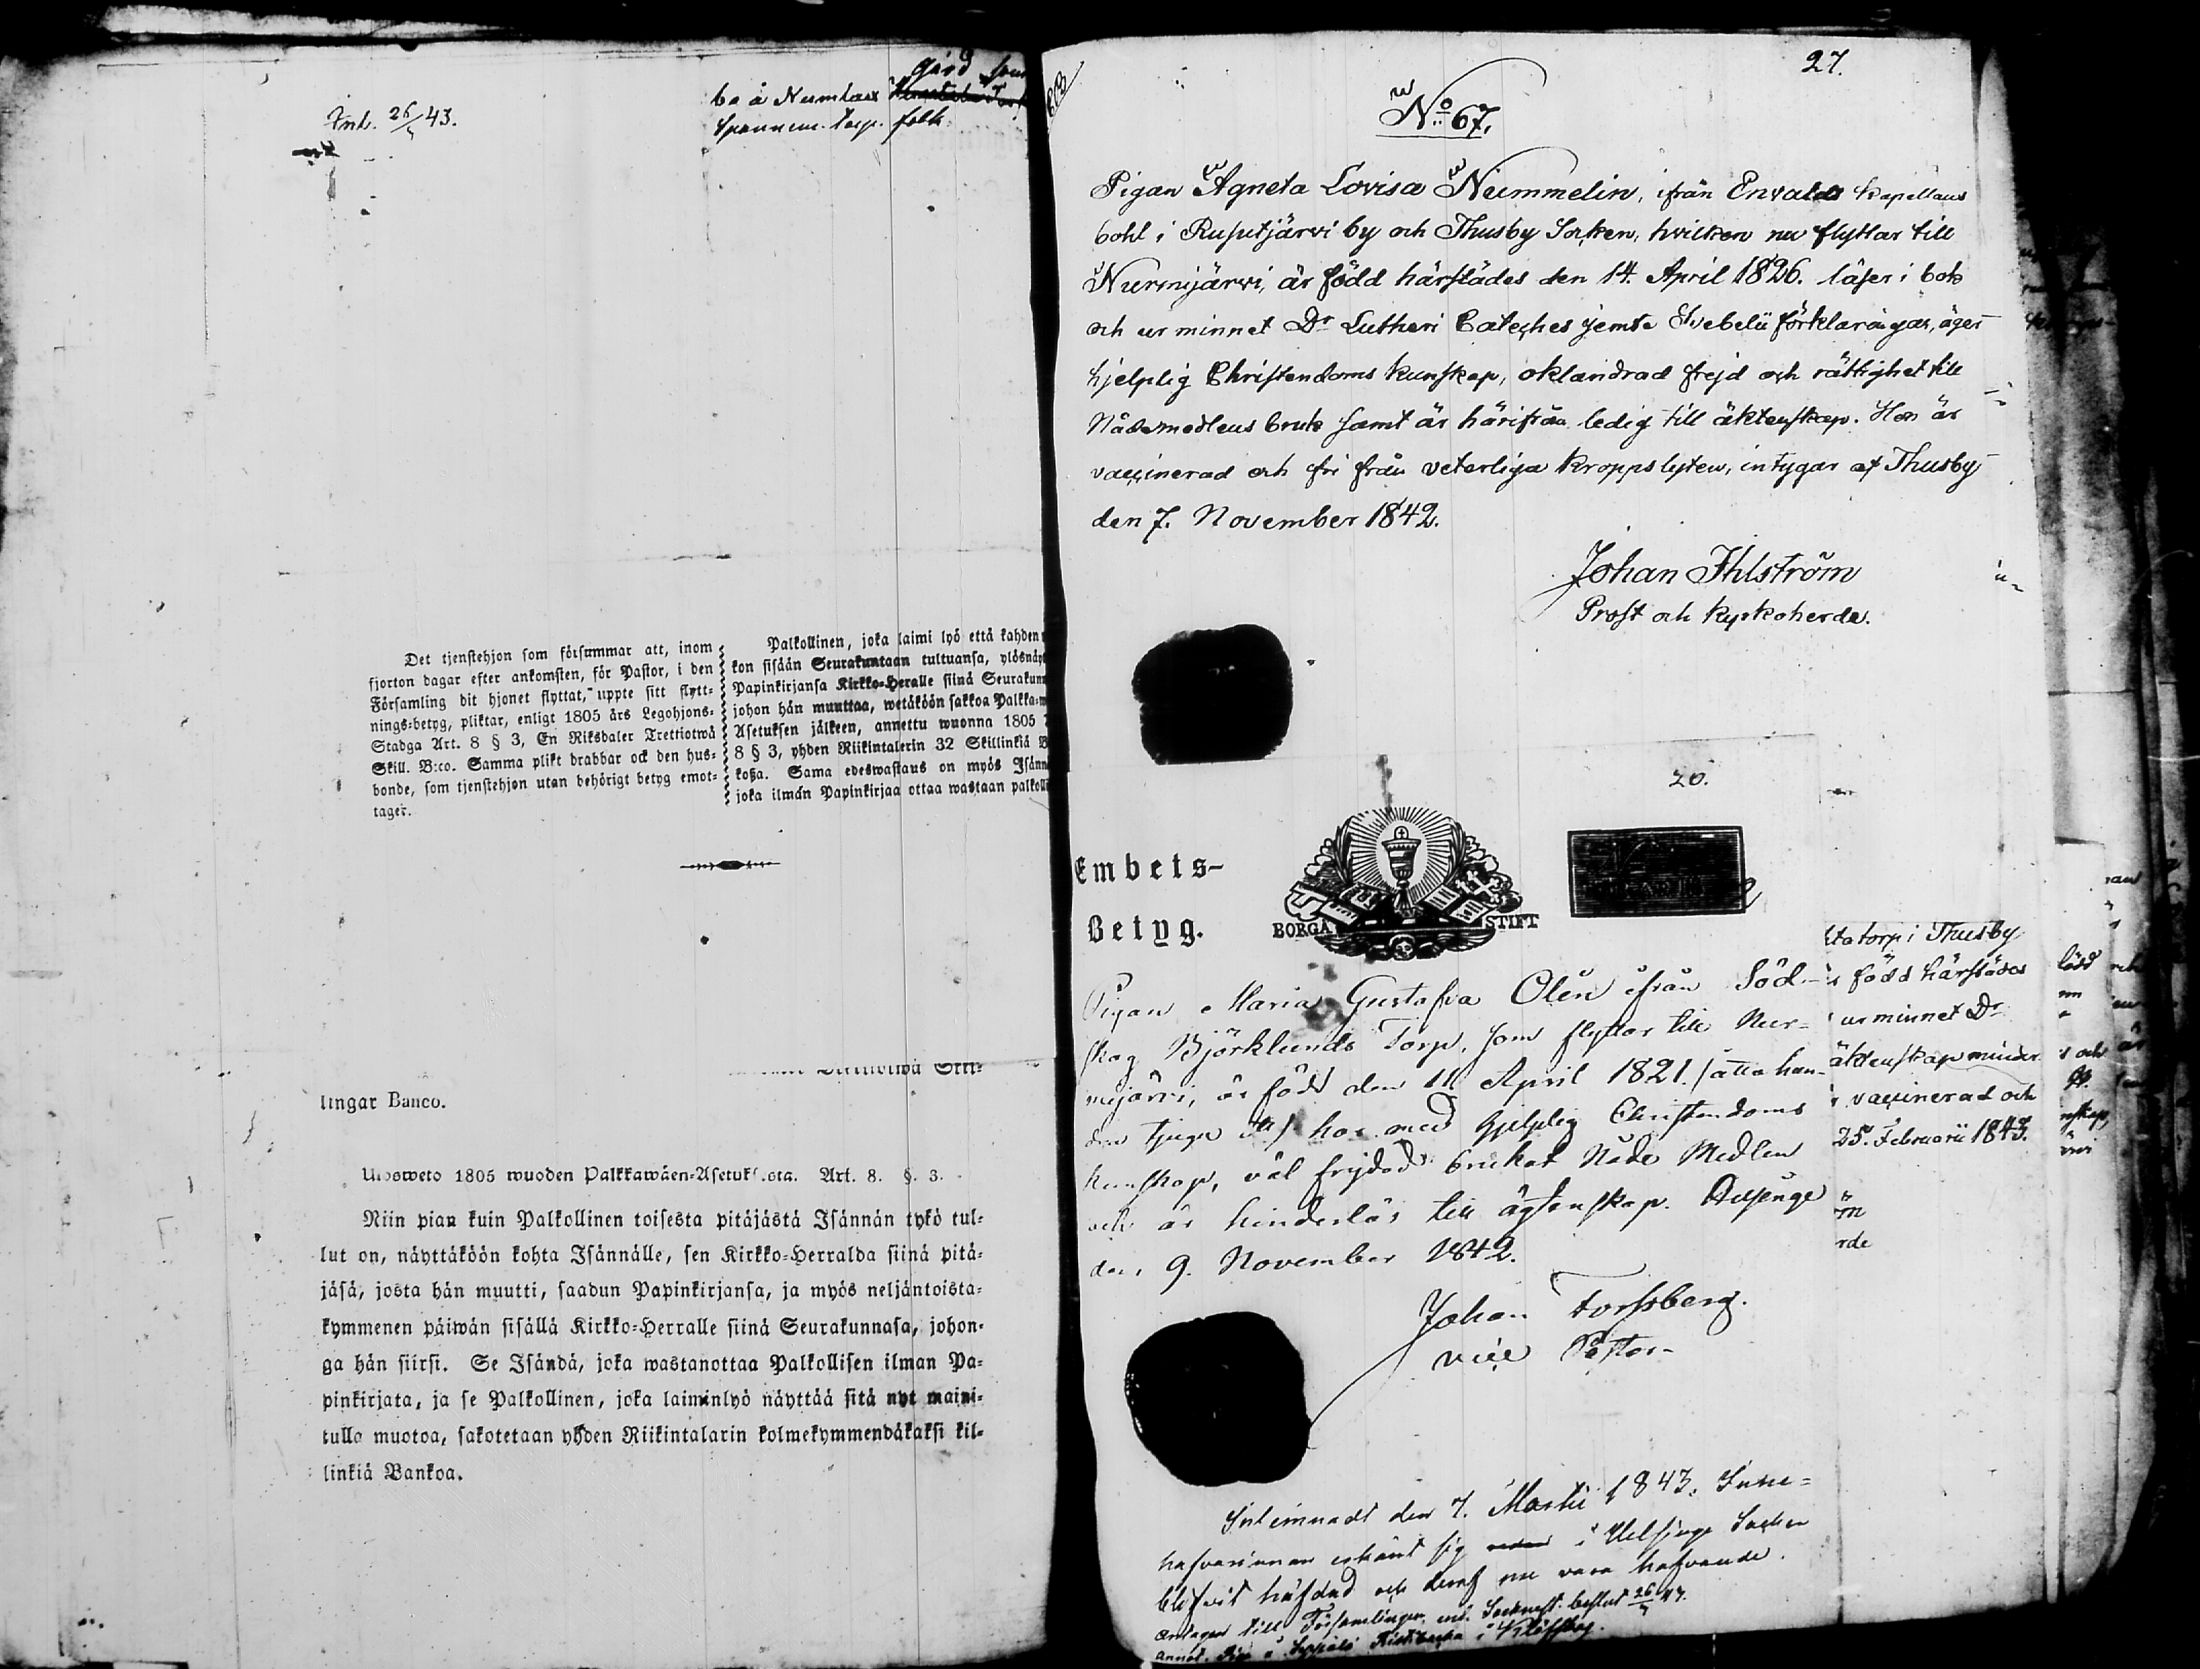 Ink. 26/4 43.
gård som
be å Numlax
Spannem. torp. folk
Det tjenstehjon som försummar att, inom
fjorton dagar efter ankomsten, för Pastor, i den
Församling dit hjonet flyttat, uppte sitt flytt-
nings-betyg, pliktar, enligt 1805 års Legohjons-
Stadga Art. 8 § 3, En Riksdaler Trettiotwå
Skill. B:co. Samma plikt drabbar ock den hus-
bonde, som tjenstehjon utan behörigt betyg emot-
tager.
Palkollinen, joka laimi lyö että kahden
kon sisään Seurakuntaan tultuansa, ylösnäyt
Papinkirjansa Kirkko-Heralle siinä Seurakunn
johon hän muuttaa, wetäköön sakkoa Palkka-w
Asetuksen jälkeen, annettu wuonna 1805
8 § 3, yhden Riikintalerin 32 Skillinkiä B
koßa. Sama edeswastaus on myös Isänn
joka ilman Papinkirjaa ottaa wastaan palkolli
lingar Banco.
Ulosweto 1805 wuoden Palkkawäen-Asetuksesta. Art. 8. §. 3.
Niin pian kuin Palkollinen toisesta pitäjästä Isännän tykö tul-
lut on, näyttäköön kohta Isännälle, sen Kirkko-Herralda siinä pitä-
jäsä, josta hän muutti, saadun Papinkirjansa, ja myös neljäntoista-
kymmenen päiwän sisällä Kirkko-Herralle siinä Seurakunnasa, johon-
ga hän siirsi. Se Isändä, joka wastanottaa Palkollisen ilman Pa-
pinkirjata, ja se Palkollinen, joka laiminlyö näyttää sitä nyt maini-
tulla muotoa, sakotetaan yhden Riikintalarin kolmekymmendäkaksi kil-
linkiä Bankoa.
27.
No 67.
Pigan Agneta Lovisa Nummelin, ifrån Envalds kapellans
bohl i Rusutjärvi by och Thusby Socken, hvilken nu flyttar till
Nurmijärvi, är född härstädes den 14. April 1826. läser i bok
och ur minnet Dr Lutheri Cateches jemte Svebelii förklaringar, äger
hjelplig Christendoms kunskap, oklandrad frejd och rättighet till
Nådemedlens bruk samt är härifrån ledig till äktenskap. Hon är
vaccinerad och fri från veterliga kroppslyten, intygar af Thusby
den 7. November 1842.
Johan Ihlström
Prost och Kyrkoherde.
20.
Embets-
Betyg.
BORGÅ STIFT
Pigan Maria Gustafva Olén ifrån Söd-
skog Björklunds Torp, som flyttar till Nur-
mijärvi, är född den 11 April 1821. /åtta hun-
dra tjugu ett/ har med hjelplig Christendoms
kunskap, väl frejdad brukat Nåde Medlen
och är hinderlös till ägtenskap. Helsinge
den 9. November 1842.
Johan Forssberg.
vice Pastor
tta torp i Thusby
r född härstädes
ur minnet Dr
äktenskap mindr
vaccinerad och
25. Februarii 1843.
rde
Intimnadt den 7. Martii 1843. Inne-
hafvarinnan erkänt sig i Helsinge Socken
blifvit häfdad och deraf nu vara hafvande.
antagen till Församlingen enl. Sockenst. beslut 26/4 43.